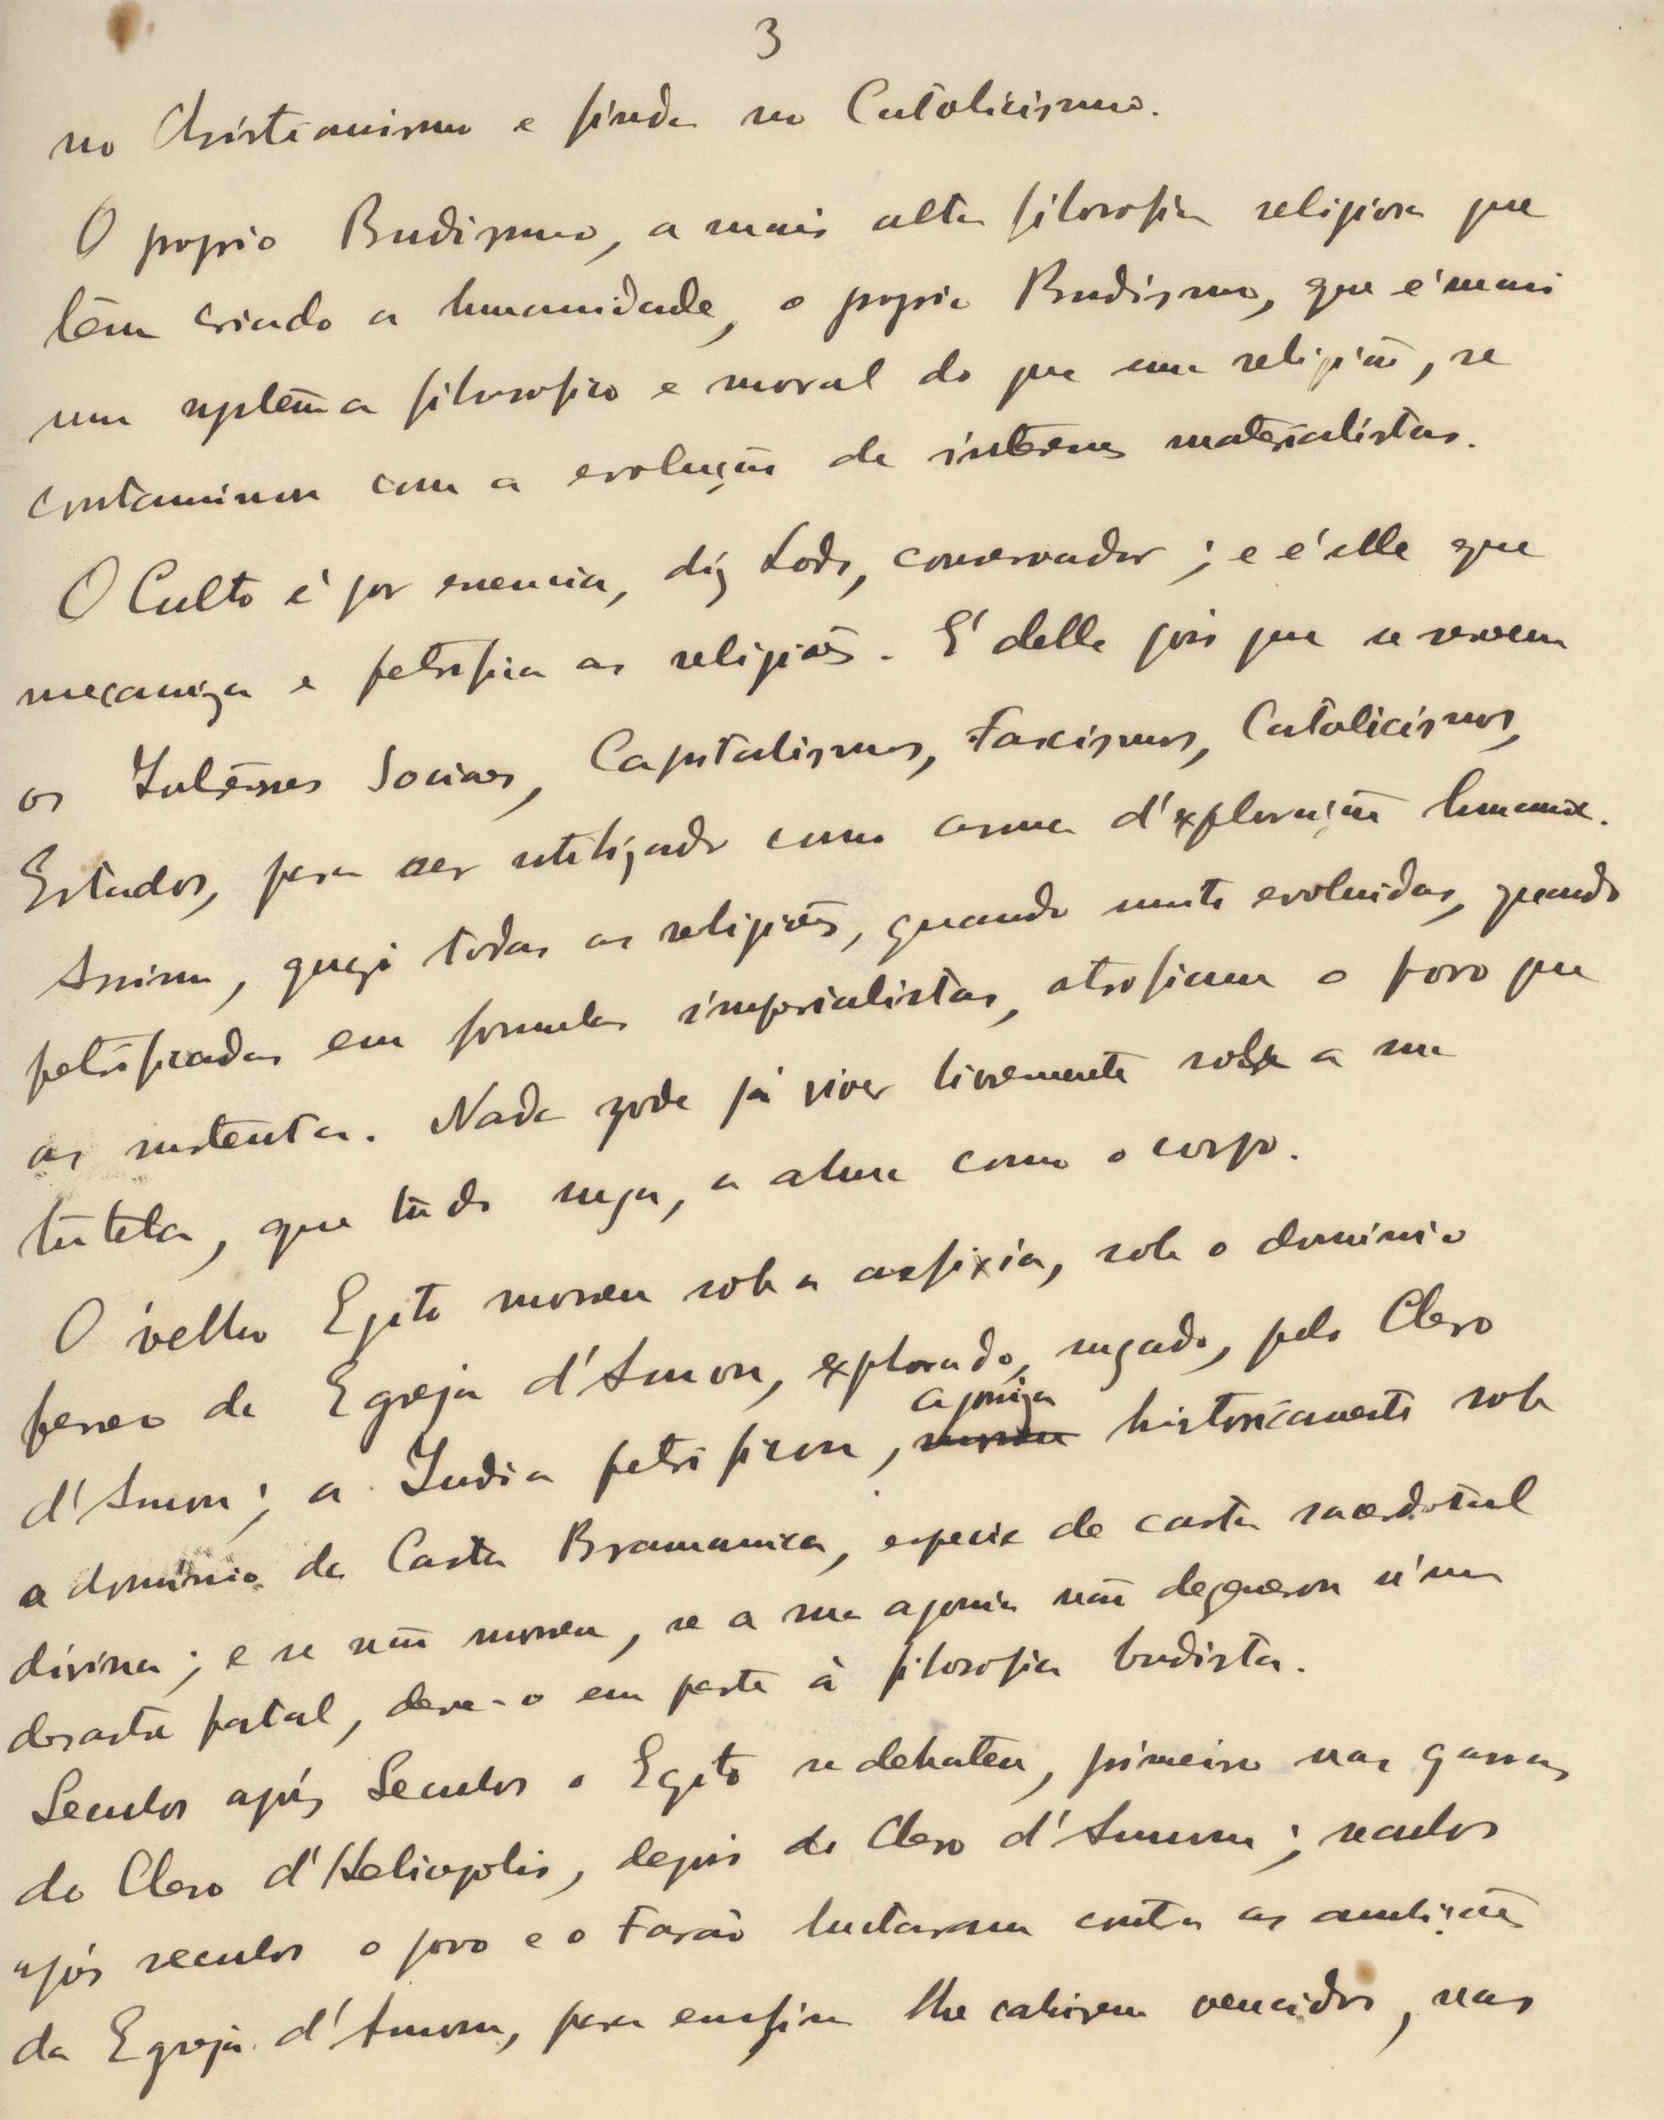 3
no Christianismo e finda no Catolicismo.
O proprio Budismo, a mais alta filosofia religiosa que
têm criado a humanidade, o proprio Budismo, que é mais
um systêma filosofico e moral do que uma religião, se
contaminou com a evolução de interesses materialistas.
O Culto é por essencia, diz Lods, conservador; e é elle que
mecaniza e petrifica as religiões. E' delle pois que se servem
os Interêsses Sociaes, Capitalismos, Fascismos, Catolicismos,
Estados, para ser utilizado como arma d'exploração humana.
Assim, quazi todas as religiões, quando muito evoluidas, quando
petrificadas em formulas imperialistas, atrofiam o povo que
as sustenta. Nada pode já viver livremente sob a sua
tutela, que tudo suga, a alma como o corpo.
O velho Egito morreu sob a asfixia, sob o dominio
ferreo da Egreja d'Amon, explorado, sugado, pelo Clero
d'Amon; a India petrificou, morreu agoniza historicamente sob
o dominio da Casta Bramanica, especie de casta sacerdotal
divina; e se não morreu, se a sua agonia não degenerou n'um
desastre fatal, deve-o em parte à filosofia budista.
Seculos após Seculos o Egito se debateu, primeiro nas garras
do Clero d'Heliopolis, depois do Clero d'Ammon; seculos
após seculos o povo e o Faraó luctaram contra as ambições
da Egreja d'Amom, para emfim lhe cahirem vencidos, nas